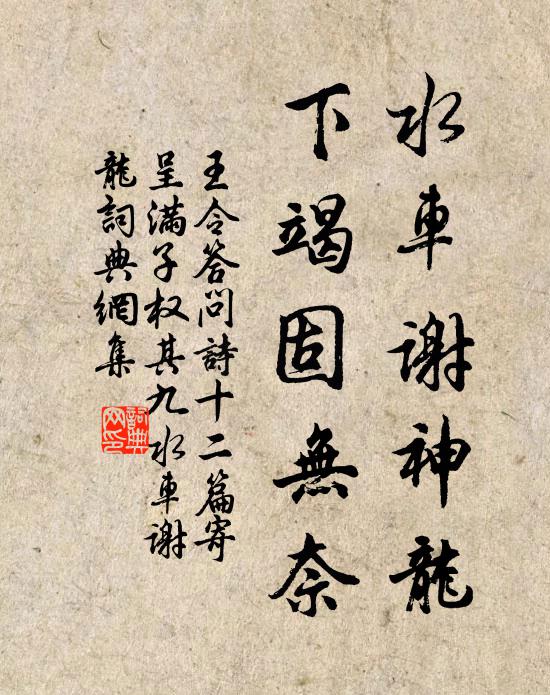 水車謝神龍
下竭固無奈
王令答問詩十二篇寄
呈滿子权其九水車謝
龍詞典網集
詞典
网印